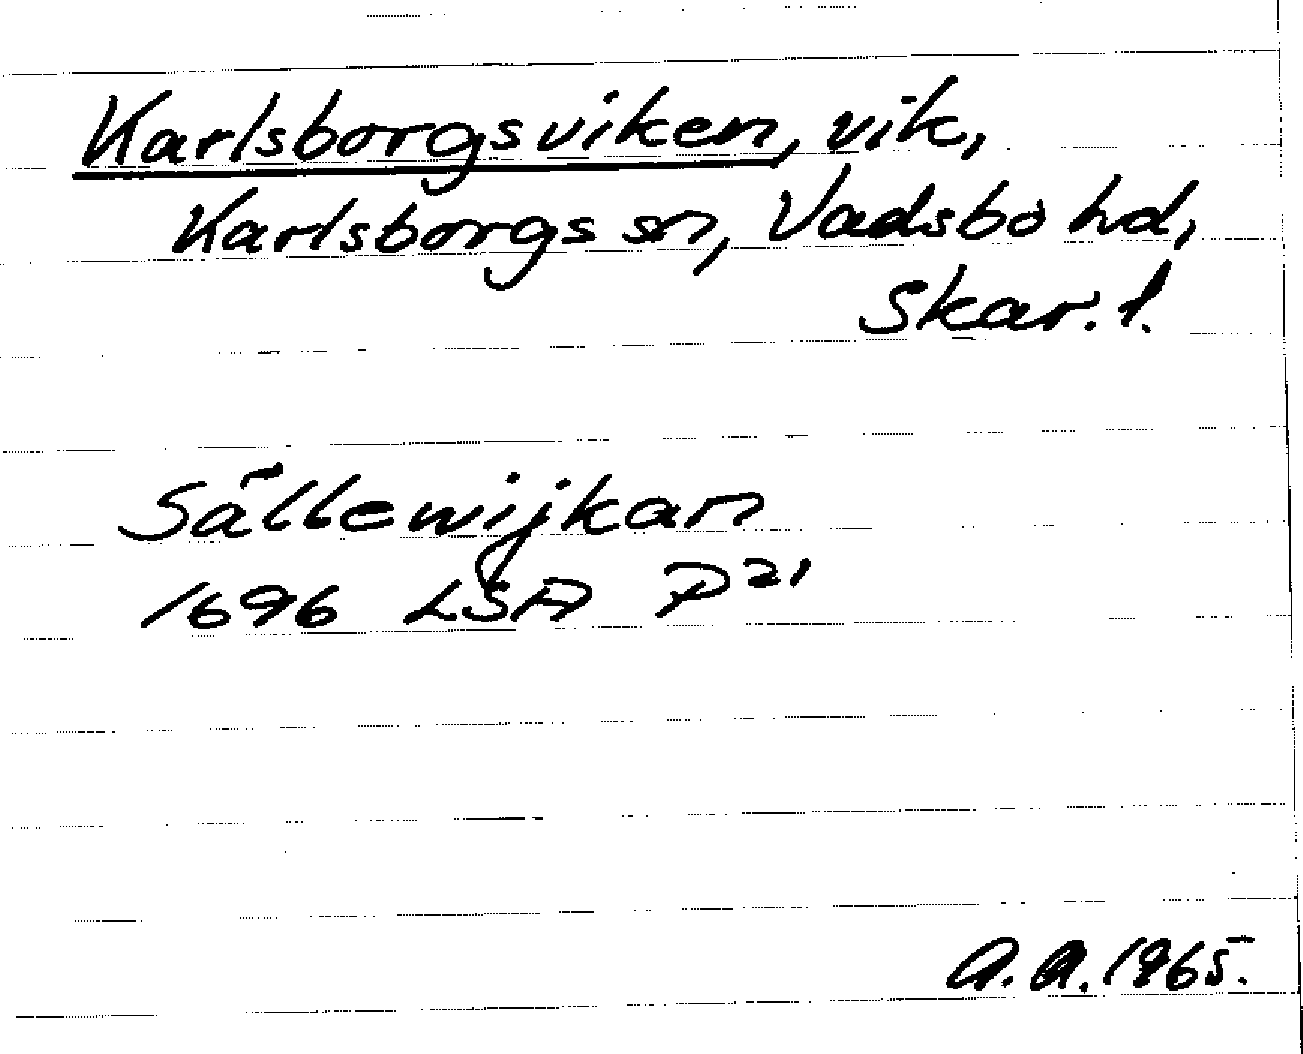 Karlsborgsviken, vik,
Karlsborgs sn, Vadsbo hd,
Skar. l.
Sällewijkan
1696 LSA P21
A. A. 1965.